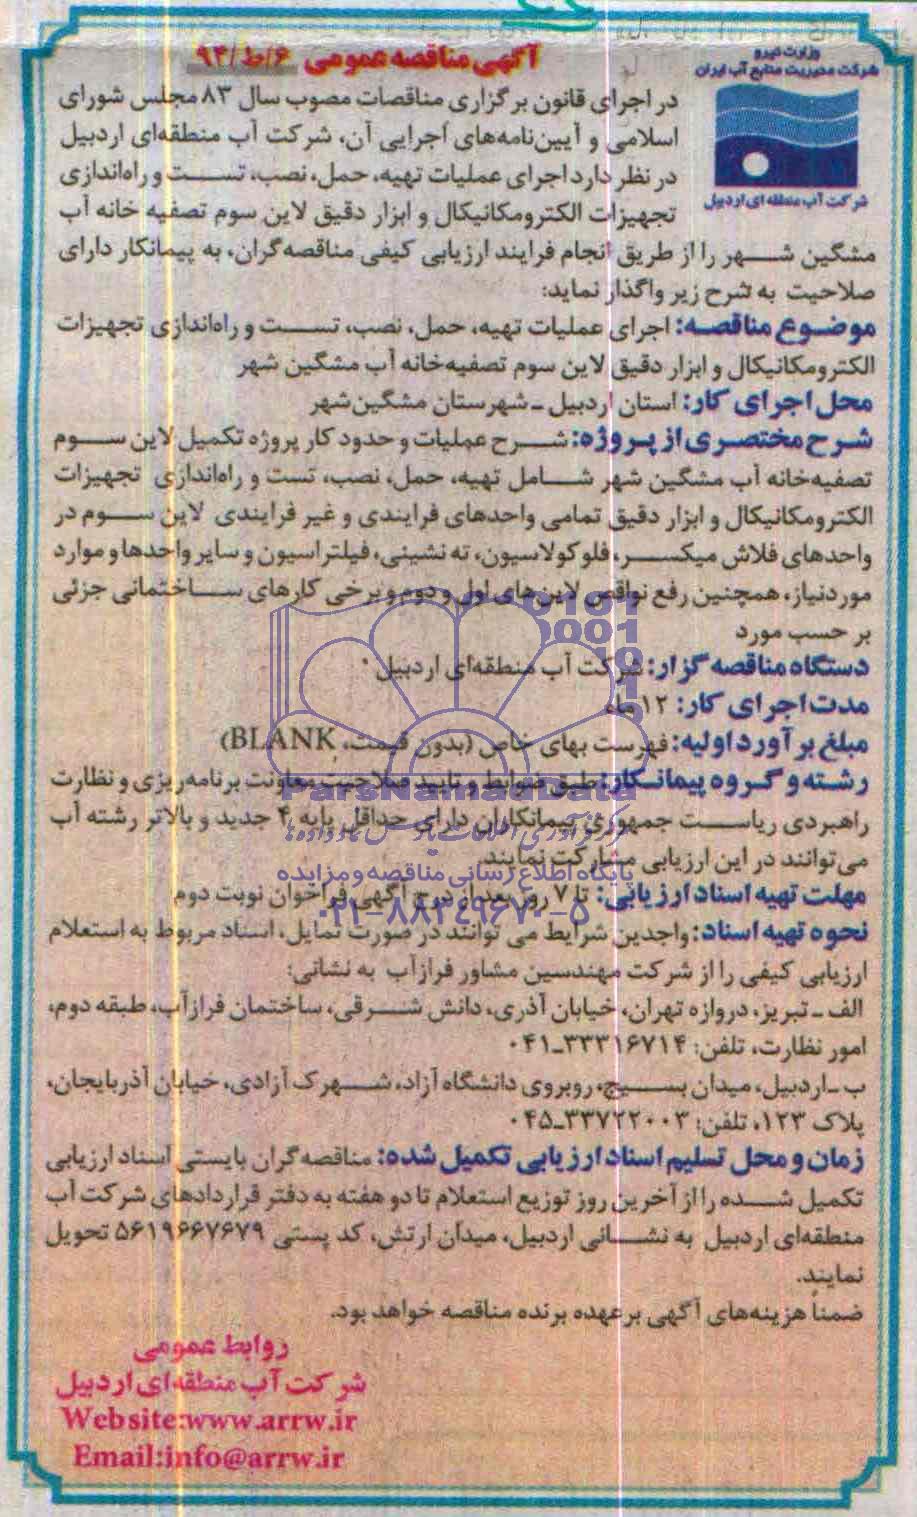 وزارت نیرو
شرکت مدیریت منابع آب ایران
شرکت آب منطقه ای اردبیل
آگهی مناقصه عمومی ۶/ط/۹۴
در اجرای قانون برگزاری مناقصات مصوب سال ۸۳ مجلس شورای
اسلامی و آیین‌نامه‌های اجرایی آن، شرکت آب منطقه‌ای اردبیل
در نظر دارد اجرای عملیات تهیه، حمل، نصب، تست و راه‌اندازی
تجهیزات الکترومکانیکال و ابزار دقیق لاین سوم تصفیه خانه آب
مشگین شهر را از طریق انجام فرایند ارزیابی کیفی مناقصه‌گران، به پیمانکار دارای
صلاحیت به شرح زیر واگذار نماید:
موضوع مناقصه: اجرای عملیات تهیه، حمل، نصب، تست و راه‌اندازی تجهیزات
الکترومکانیکال و ابزار دقیق لاین سوم تصفیه‌خانه آب مشگین شهر
محل اجرای کار: استان اردبیل ـ شهرستان مشگین‌شهر
شرح مختصری از پروژه: شرح عملیات و حدود کار پروژه تکمیل لاین سوم
تصفیه‌خانه آب مشگین شهر شامل تهیه، حمل، نصب، تست و راه‌اندازی تجهیزات
الکترومکانیکال و ابزار دقیق تمامی واحدهای فرایندی و غیر فرایندی لاین سوم در
واحدهای فلاش میکسر، فلوکولاسیون، ته نشینی، فیلتراسیون و سایر واحدها و موارد
موردنیاز، همچنین رفع نواقص لاین‌های اول و دوم و برخی کارهای ساختمانی جزئی
بر حسب مورد
دستگاه مناقصه گزار: شرکت آب منطقه‌ای اردبیل
مدت اجرای کار: ۱۲ ماه
مبلغ برآورد اولیه: فهرست بهای خاص (بدون قیمت، BLANK)
رشته و گروه پیمانکار: طبق ضوابط و تایید صلاحیت معاونت برنامه‌ریزی و نظارت
راهبردی ریاست جمهوری پیمانکاران دارای حداقل پایه ۴ جدید و بالاتر رشته آب
می‌توانند در این ارزیابی مشارکت نمایند.
ParsNamadData
پایگاه اطلاع رسانی مناقصه و مزایده
مهلت تهیه اسناد ارزیابی: تا ۷ روز بعد از درج آگهی فراخوان نوبت دوم
۰۲۱-۸۸۳۴۹۶۷۰-۵
نحوه تهیه اسناد: واجدین شرایط می توانند در صورت تمایل، اسناد مربوط به استعلام
ارزیابی کیفی را از شرکت مهندسین مشاور فرازآب به نشانی:
الف ـ تبریز، دروازه تهران، خیابان آذری، دانش شرقی، ساختمان فرازآب، طبقه دوم،
امور نظارت، تلفن: ۳۳۳۱۶۷۱۴ـ۰۴۱
ب ـ اردبیل، میدان بسیج، روبروی دانشگاه آزاد، شهرک آزادی، خیابان آذربایجان،
پلاک ۱۲۳، تلفن: ۳۳۷۲۲۰۰۳ـ۰۴۵
زمان و محل تسلیم اسناد ارزیابی تکمیل شده: مناقصه گران بایستی اسناد ارزیابی
تکمیل شده را از آخرین روز توزیع استعلام تا دو هفته به دفتر قراردادهای شرکت آب
منطقه‌ای اردبیل به نشانی اردبیل، میدان ارتش، کد پستی ۵۶۱۹۶۶۷۶۷۹ تحویل
نمایند.
ضمناً هزینه‌های آگهی برعهده برنده مناقصه خواهد بود.
روابط عمومی
شرکت آب منطقه‌ای اردبیل
Website:www.arrw.ir
Email:info@arrw.ir